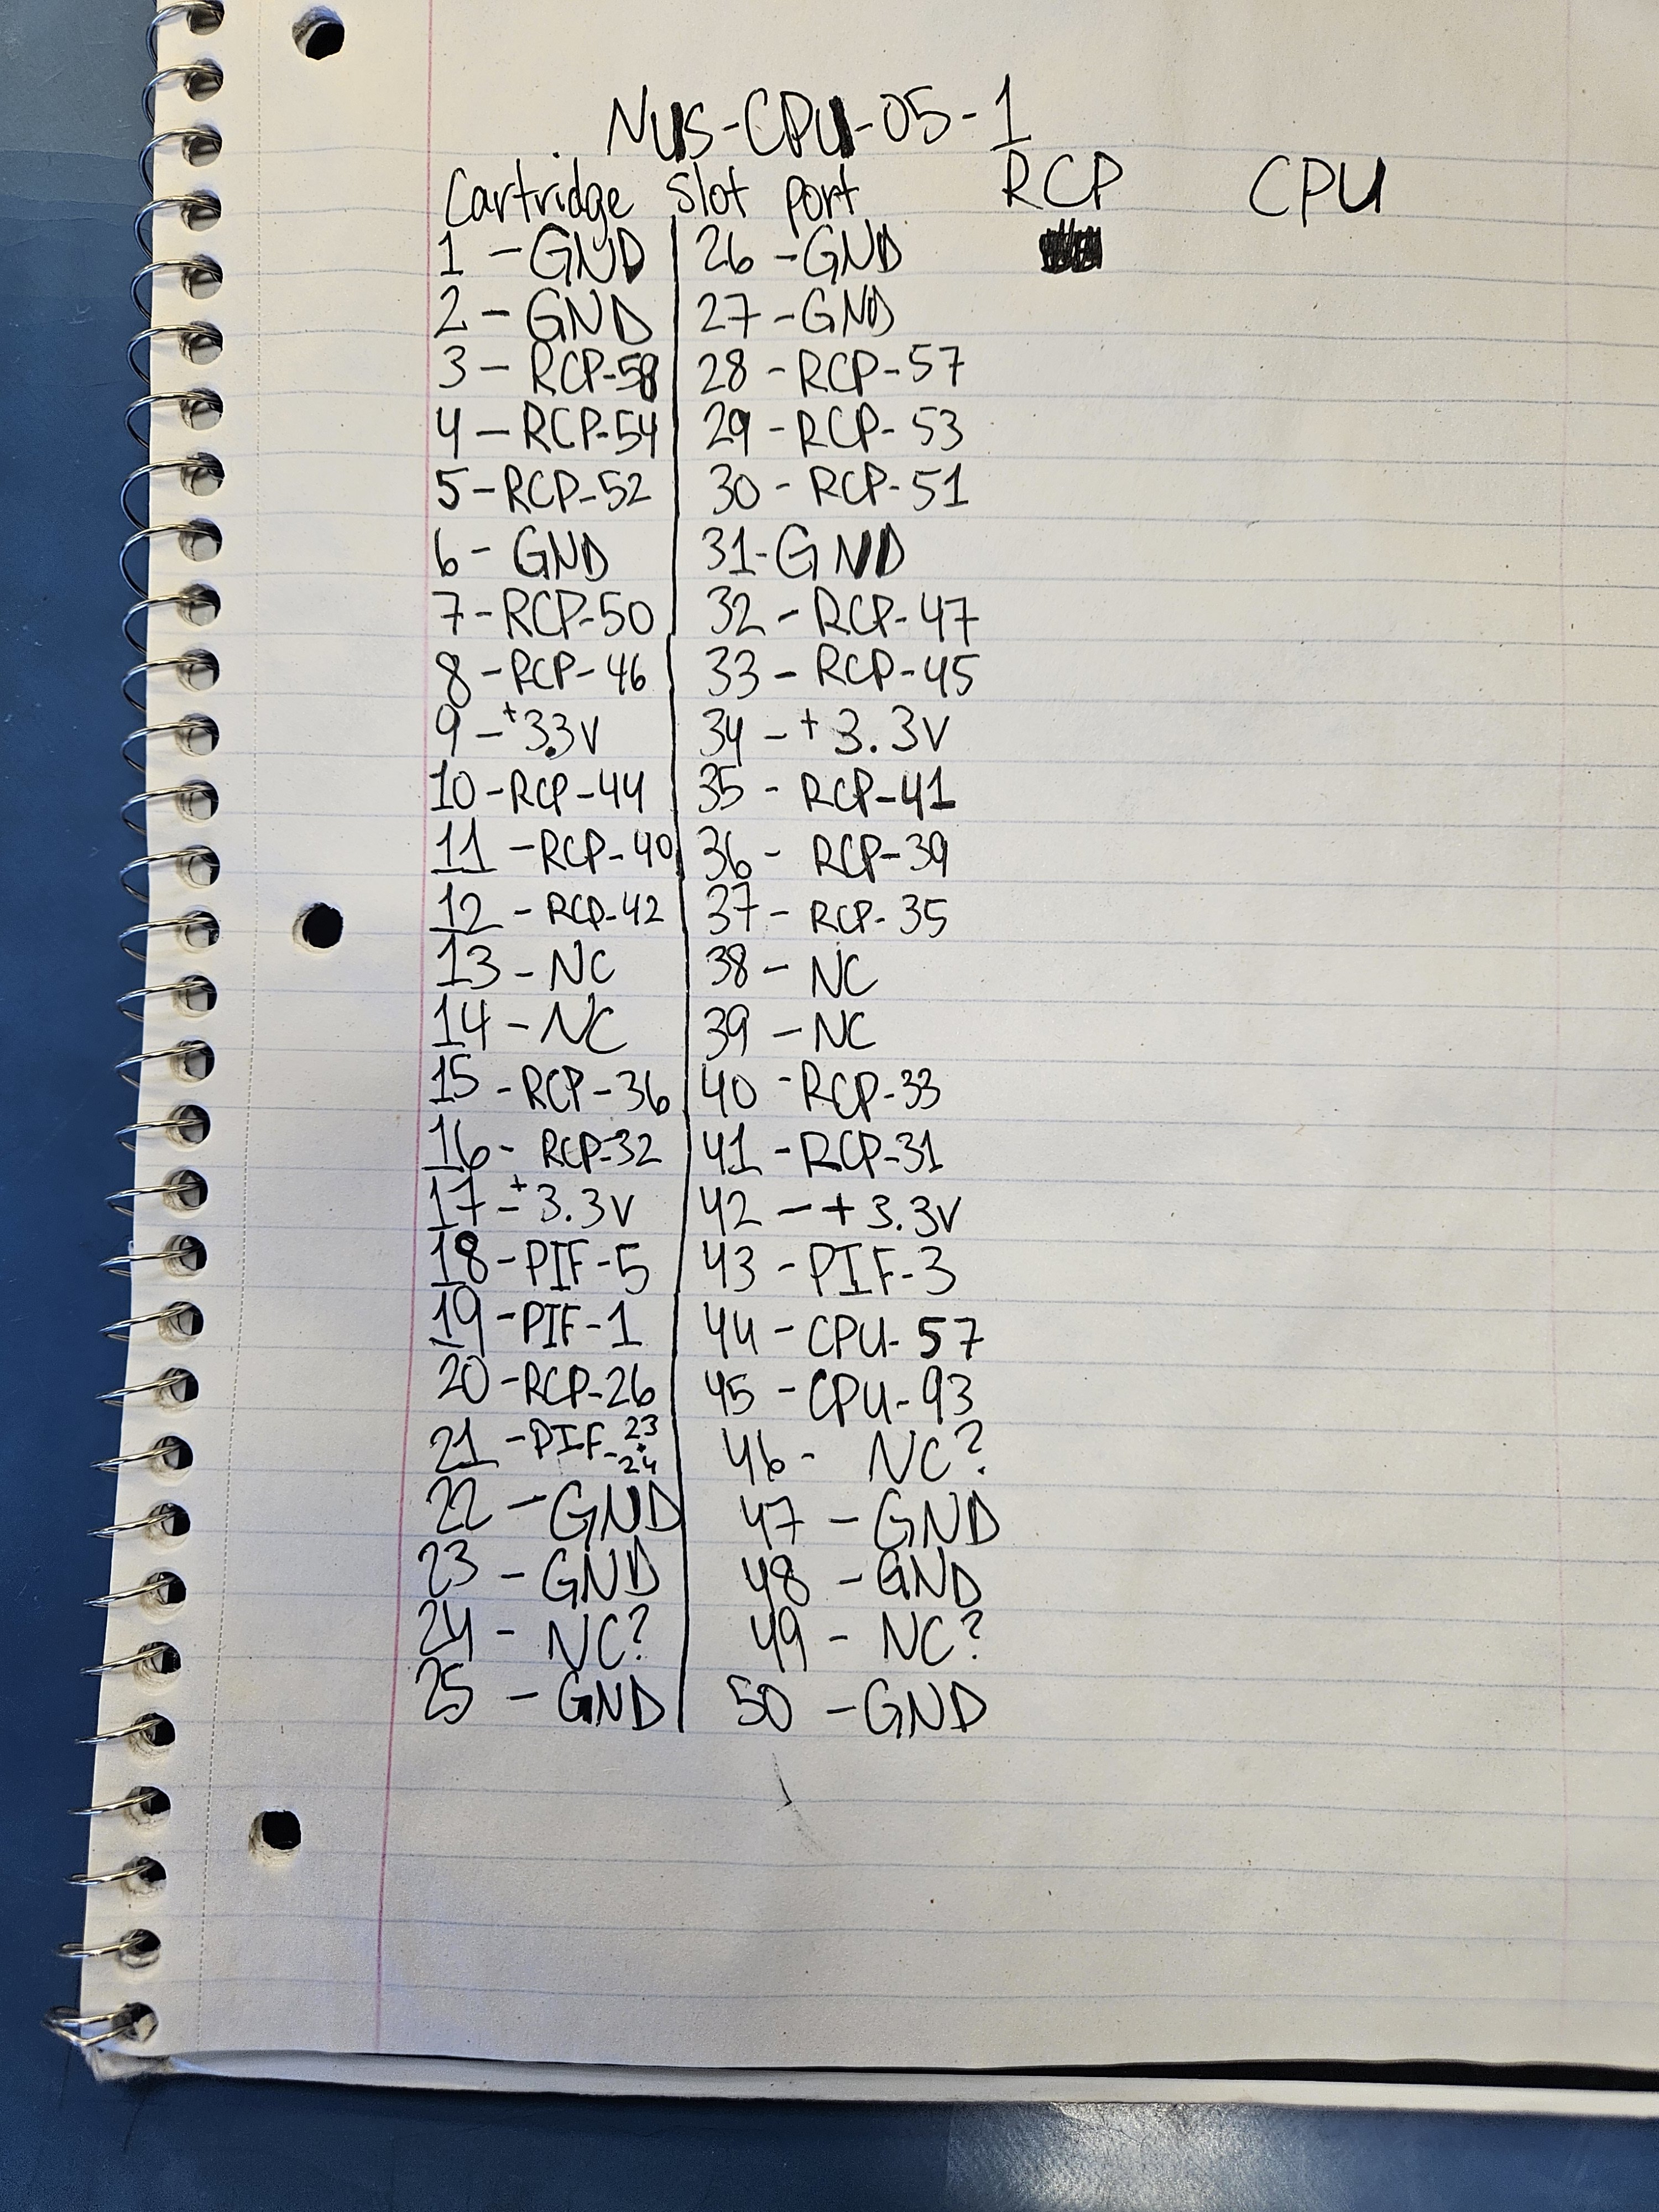 NUS-CPU-05-1
Cartridge Slot port RCP CPU
1 - GND 26 - GND
2 - GND 27 - GND
3 - RCP-58 28 - RCP-57
4 - RCP-54 29 - RCP-53
5 - RCP-52 30 - RCP-51
6 - GND 31 - GND
7 - RCP-50 32 - RCP-47
8 - RCP-46 33 - RCP-45
9 - +3.3V 34 - +3.3V
10 - RCP-44 35 - RCP-41
11 - RCP-40 36 - RCP-39
12 - RCP-42 37 - RCP-35
13 - NC 38 - NC
14 - NC 39 - NC
15 - RCP-36 40 - RCP-33
16 - RCP-32 41 - RCP-31
17 - +3.3V 42 - +3.3V
18 - PIF-5 43 - PIF-3
19 - PIF-1 44 - CPU-57
20 - RCP-26 45 - CPU-93
21 - PIF-23+24 46 - NC?
22 - GND 47 - GND
23 - GND 48 - GND
24 - NC? 49 - NC?
25 - GND 50 - GND